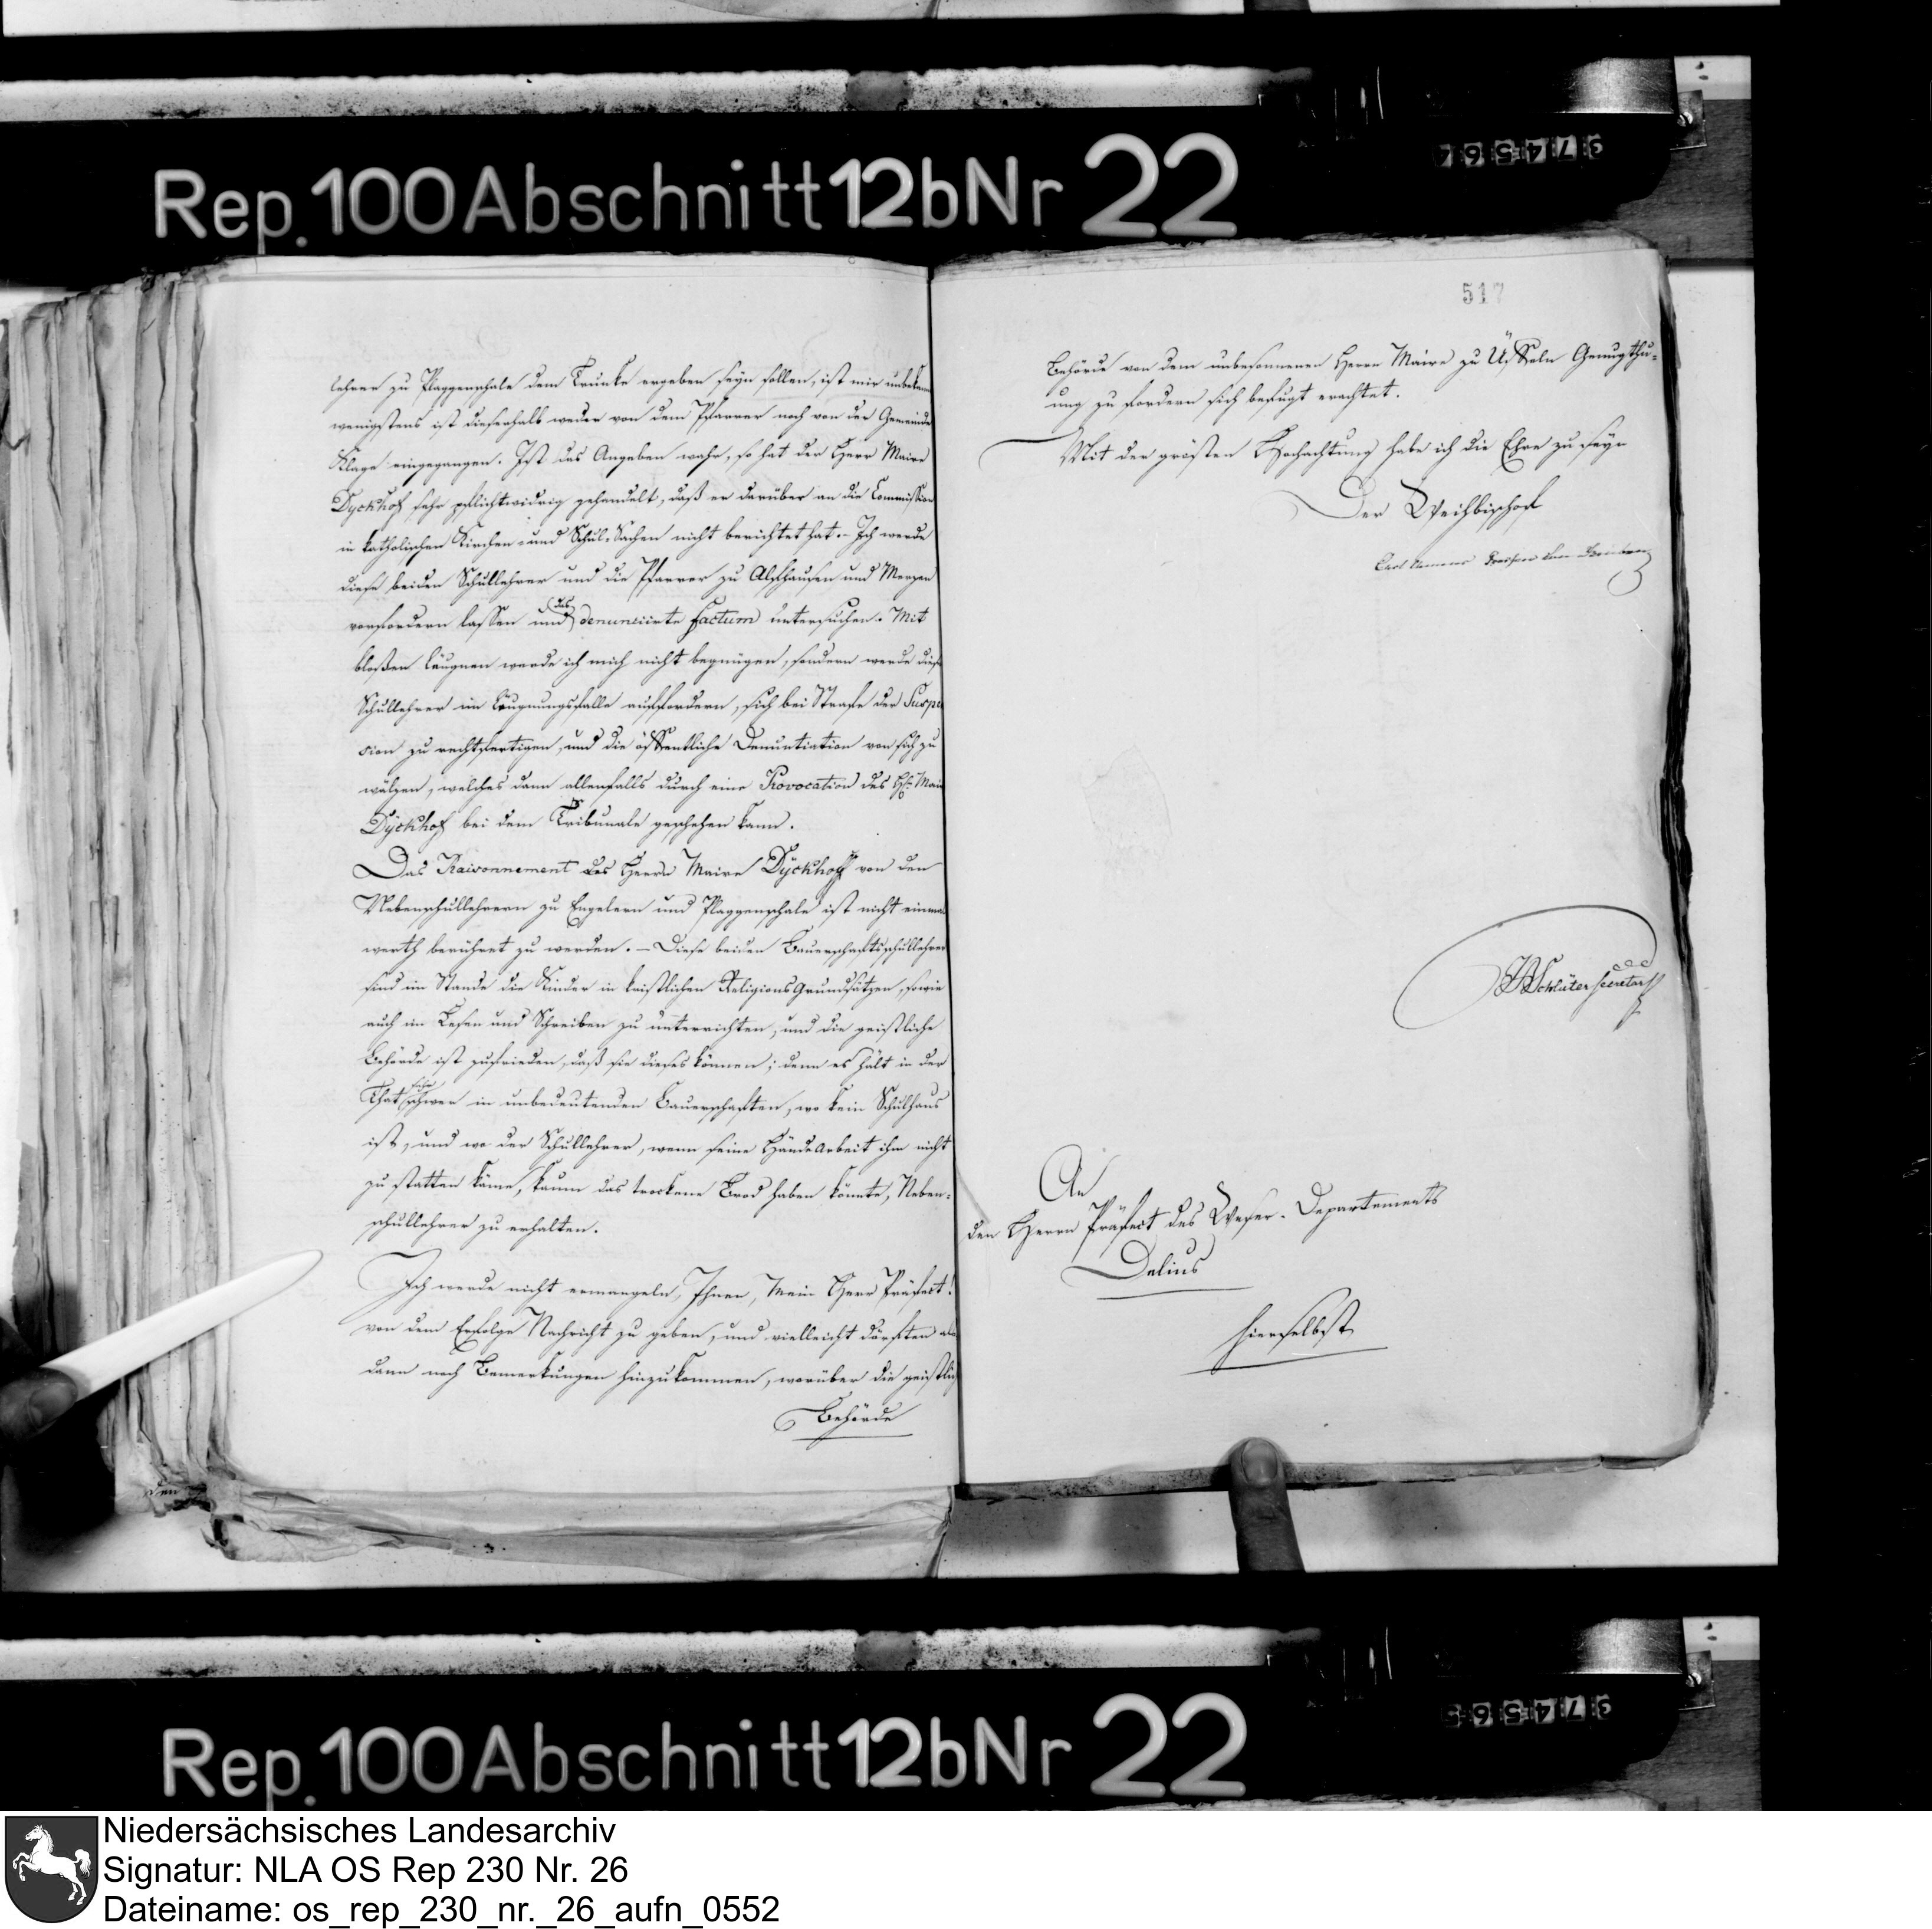 Rep. 100 Abschnitt 12b Nr 22
374564
lehrer zu Plaggenschale dem Trunke ergeben seyn sollen, ist mir unbekannt
wenigstens ist dieserhalb weder von dem Pfarrer noch von der Gemeinde
Klage eingegangen. Ist das Angeben wahr, so hat der Herr Maire
Dyckhof sehr pflichtwidrig gehandelt, daß er darüber an die Commission
in katholischen Kirchen- und Schul-Sachen nicht berichtet hat. – Ich werde
diese beiden Schullehrer und die Pfarrer zu Alfhausen und Merzen
vorfordern lassen und das denunciirte factum untersuchen. Mit
bloßen Läugnen werde ich mich nicht begnügen, sondern werde diese
Schullehrer im Läugnungsfalle auffordern, sich bei Strafe der Suspen
sion zu rechtfertigen, und die öffentliche Denuntiation von sich zu
wälzen, welches dann allenfalls durch eine Provocation des H. Maire
Dÿckhof bei dem Tribunale geschehen kann.
Das Raisonnement des Herrn Maire Dÿckhoff von den
Nebenschullehrern zu Engelern und Plaggenschale ist nicht einmal
werth berühret zu werden. – Diese beiden Bauerschaftsschullehrer
sind im Stande die Kinder in kristlichen ReligionsGrundsätzen, sowie
auch im Lesen und Schreiben zu unterrichten, und die geistliche
Behörde ist zufrieden, daß sie dieses können; denn es hält in der
That sehr schwer in unbedeutenden Bauerschaften, wo kein Schulhaus
ist, und wo der Schullehrer, wenn seine HändeArbeit ihm nicht
zu statten käme, kaum das trockene Brod haben könnte, Neben-
schullehrer zu erhalten.
Ich werde nicht ermangeln, Ihnen, Mein Herr Präfect!
von dem Erfolge Nachricht zu geben, und vielleicht dörften als
dann noch Bemerkungen hinzukommen, worüber die geistliche
Behörde
517
Behörde von dem unbesonnenen Herrn Maire zu Üffeln Genugthu-
ung zu fordern sich befugt erachtet.
Mit der grösten Hochachtung habe ich die Ehre zu seyn
Der Weihbischof
Carl Clemens von Gruben
Schlüter secretar
An
den Herrn Präfect des Weser-Departements
Delius
hierselbst
den
Rep. 100 Abschnitt 12b Nr 22
374565
Niedersächsisches Landesarchiv
Signatur: NLA OS Rep 230 Nr. 26
Dateiname: os_rep_230_nr._26_aufn_0552